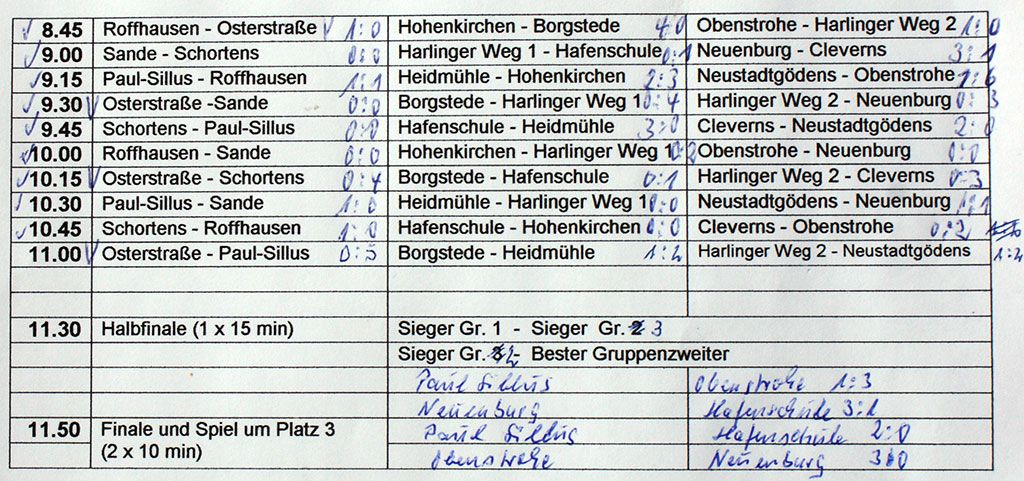 8.45 Roffhausen - Osterstraße 1:0 Hohenkirchen - Borgstede 4:0 Obenstrohe - Harlinger Weg 2 1:0
9.00 Sande - Schortens 0:0 Harlinger Weg 1 - Hafenschule 0:1 Neuenburg - Cleverns 3:1
9.15 Paul-Sillus - Roffhausen 1:1 Heidmühle - Hohenkirchen 2:3 Neustadtgödens - Obenstrohe 1:6
9.30 Osterstraße -Sande 0:0 Borgstede - Harlinger Weg 1 0:4 Harlinger Weg 2 - Neuenburg 0:3
9.45 Schortens - Paul-Sillus 0:0 Hafenschule - Heidmühle 3:0 Cleverns - Neustadtgödens 2:0
10.00 Roffhausen - Sande 0:0 Hohenkirchen - Harlinger Weg 1 0:2 Obenstrohe - Neuenburg 0:0
10.15 Osterstraße - Schortens 0:4 Borgstede - Hafenschule 0:1 Harlinger Weg 2 - Cleverns 0:3
10.30 Paul-Sillus - Sande 1:0 Heidmühle - Harlinger Weg 1 0:0 Neustadtgödens - Neuenburg 1:1
10.45 Schortens - Roffhausen 1:0 Hafenschule - Hohenkirchen 0:0 Cleverns - Obenstrohe 0:2
11.00 Osterstraße - Paul-Sillus 0:5 Borgstede - Heidmühle 1:2 Harlinger Weg 2 - Neustadtgödens 1:2
11.30 Halbfinale (1 x 15 min) Sieger Gr. 1 - Sieger Gr. 3
Sieger Gr. 2 - Bester Gruppenzweiter
Paul Sillus Obenstrohe 1:3
Neuenburg Hafenschule 3:1
11.50 Finale und Spiel um Platz 3 Paul Sillus Hafenschule 2:0
(2 x 10 min) Obenstrohe Neuenburg 3:0